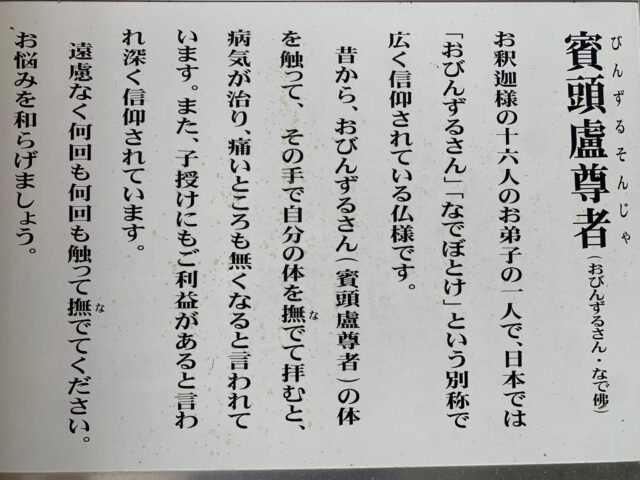 賓頭盧尊者(おびんずるさん・なで佛)
びんずるそんじゃ
お釈迦様の十六人のお弟子の一人で、日本では
「おびんずるさん」「なでぼとけ」という別称で
広く信仰されている仏様です。
昔から、おびんずるさん(賓頭盧尊者)の体
を触って、その手で自分の体を撫でて拝むと、
な
病気が治り、痛いところも無くなると言われて
います。また、子授けにもご利益があると言わ
れ深く信仰されています。
遠慮なく何回も何回も触って撫でてください。
な
お悩みを和らげましょう。